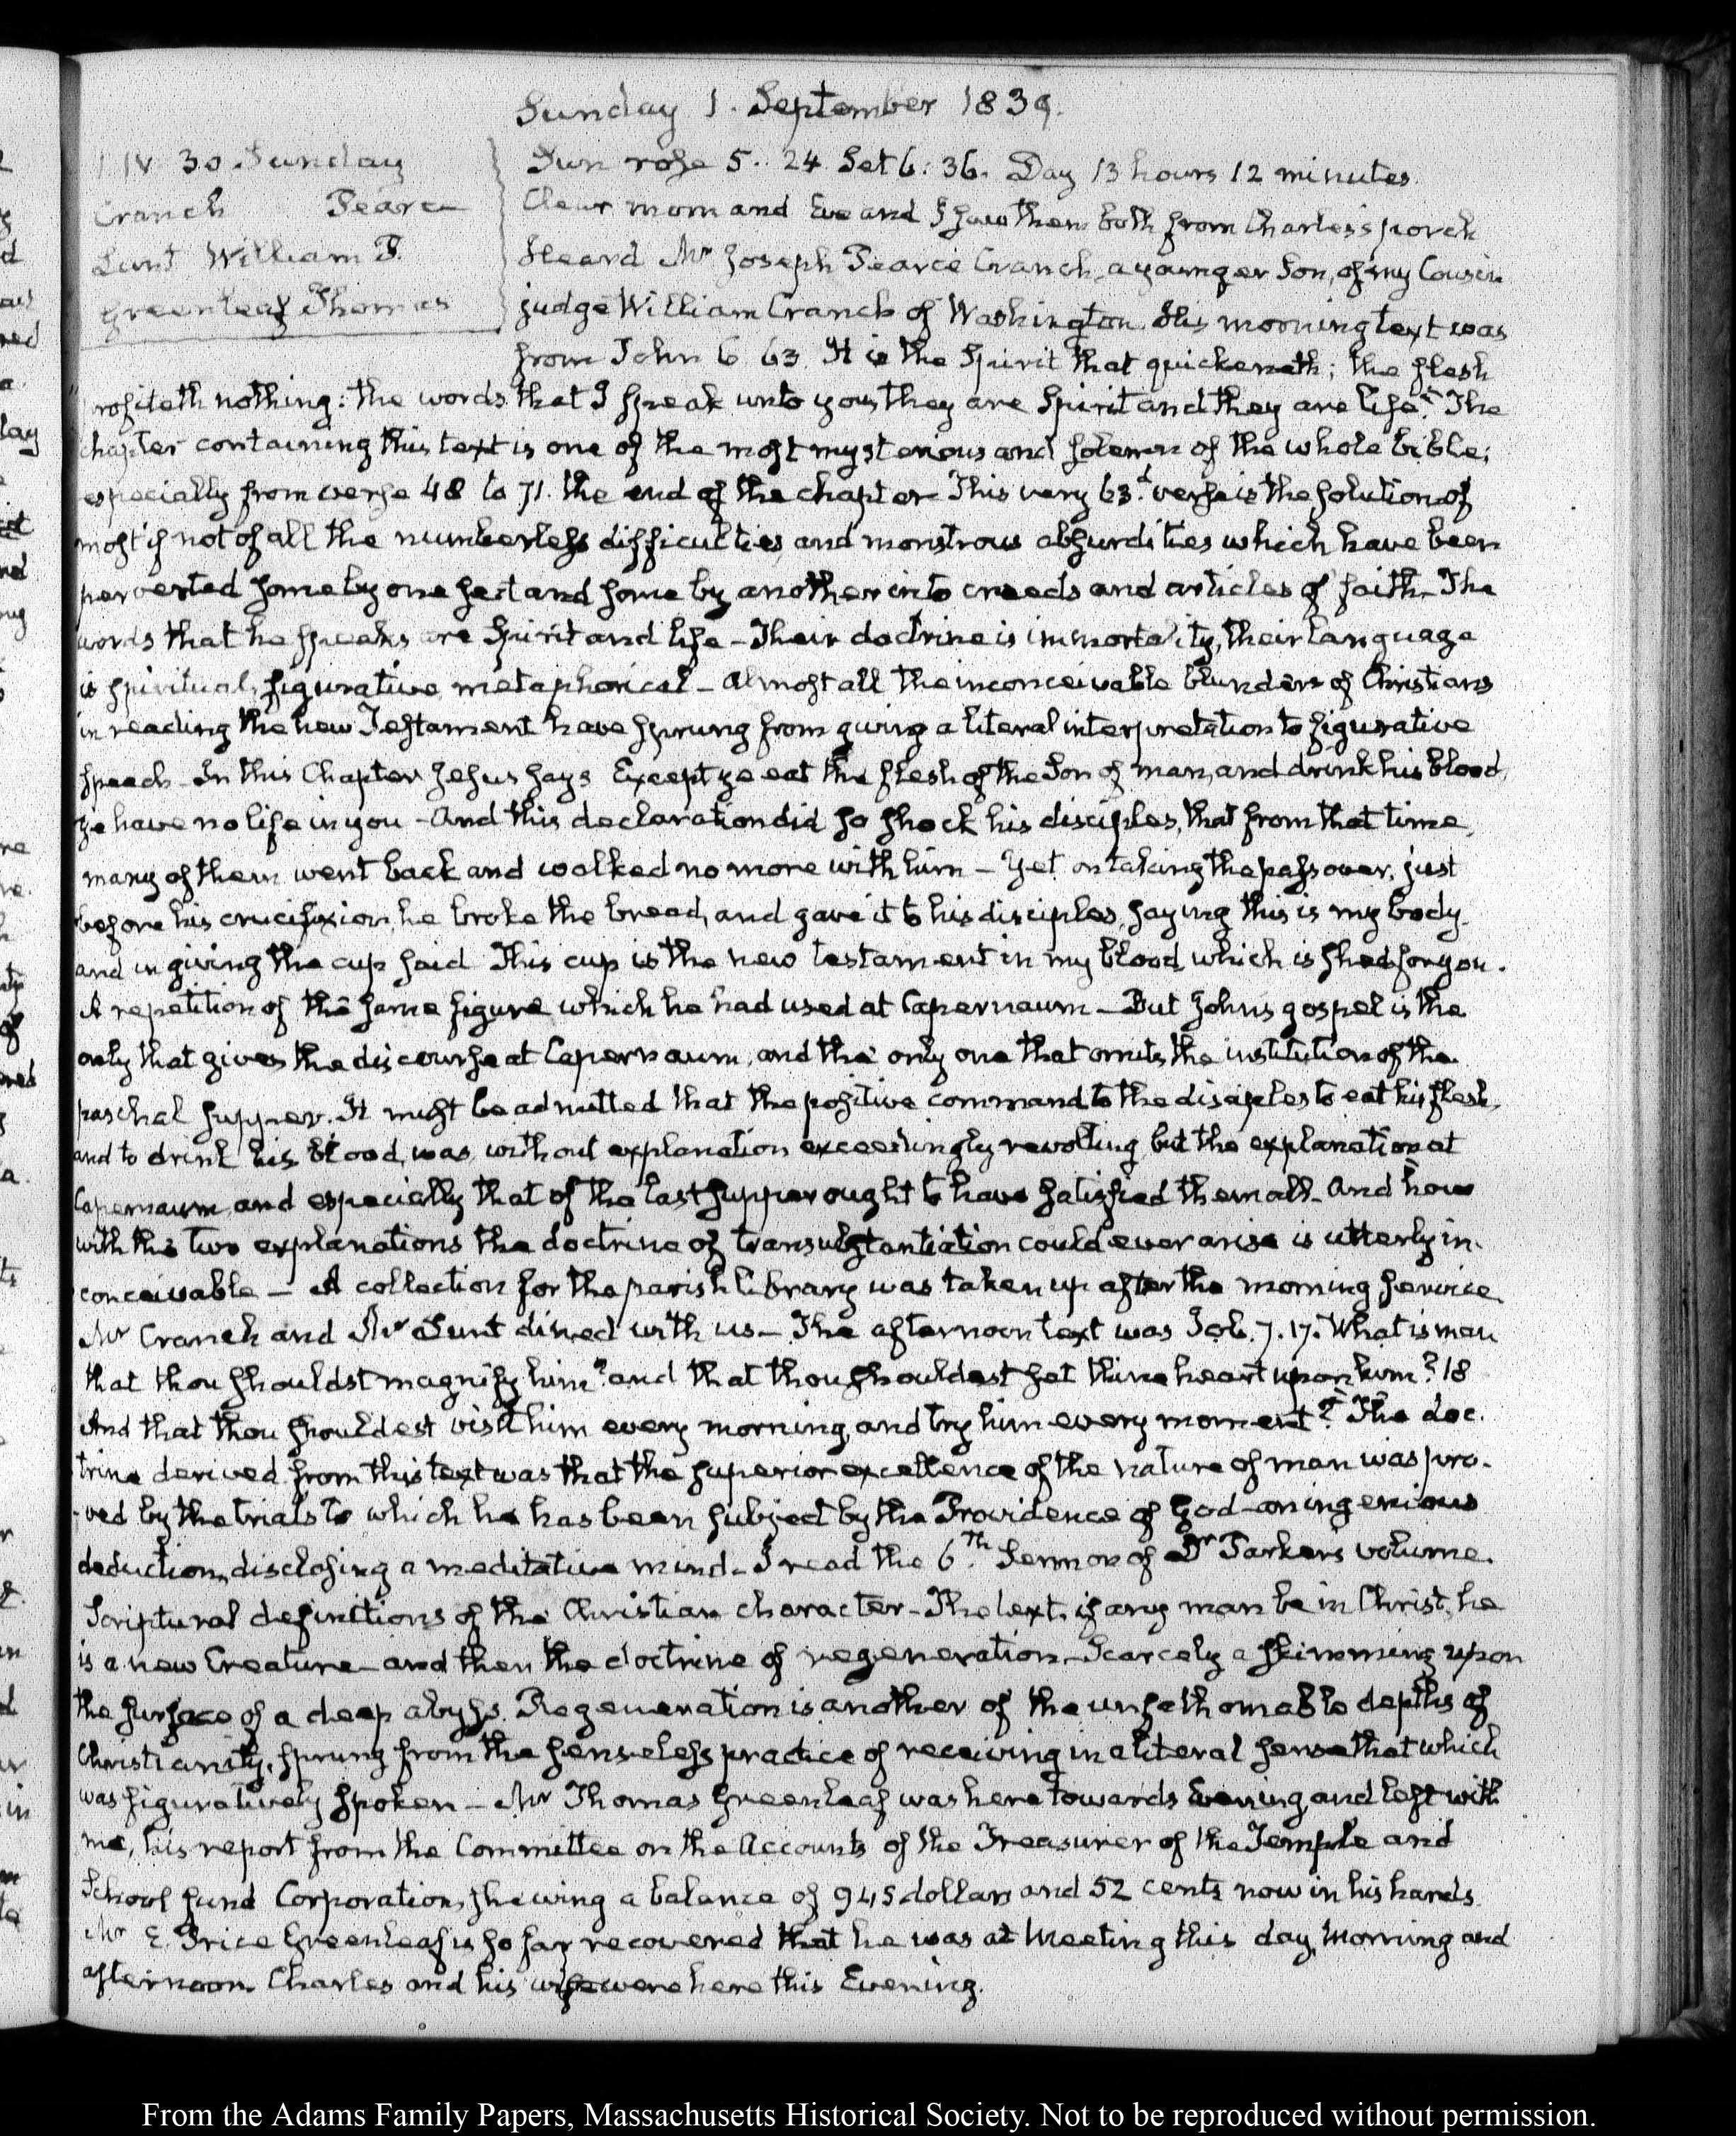 Sunday 1. September 1839.
IV. 30 Sunday
Cranch Pearce
Lunt William P.
Greenleaf Thomas
Sun rose 5. 24 Set 6. 36. Day 13 hours 12 minutes.
Clear morn and Eve and I saw them both from Charles's porch
Heard Mr Joseph Pearce Cranch, a younger Son, of my Cousin
judge William Cranch of Washington. His morning text was
from John 6 63. It is the Spirit that quickeneth; the flesh
profiteth nothing: the words that I speak unto you, they are Spirit and they are life." The
chapter containing this text is one of the most mysterious and solemn of the whole bible;
especially from verse 48 to 71. the end of the chapter This very 63.d verse is the solution of
most if not of all the numberless difficulties and monstrous absurdities which have been
perverted some by one sect and some by another into creeds and articles of faith. The
words that he speaks are Spirit and life – Their doctrine is immortality, their language
is spiritual, figurative metaphorical – Almost all the inconceivable blunders of Christians
in reading the new Testament have sprung from giving a literal interpretation to figurative
speech – In this Chapter Jesus says Except ye eat the flesh of the Son of man, and drink his blood,
ye have no life in you – And this declaration did so shock his disciples, that from that time,
many of them went back and walked no more with him – Yet on taking the passover, just
before his crucifixion, he broke the bread, and gave it to his disciples, saying this is my body,
and in giving the cup said This cup is the new testament in my blood, which is shed for you.
A repetition of the same figure which he had used at Capernaum – But Johns gospel is the
only that gives the discourse at Capernaum, and the only one that omits the institution of the
paschal supper. It might be admitted that the positive command to the disciples to eat his flesh,
and to drink his blood, was, without explanation exceedingly revolting, but the explanation at
Capernaum, and especially that of the last supper ought to have satisfied them all – And how
with this two explanations the doctrine of transubstantiation could ever arise is utterly in-
conceivable – A collection for the parish library was taken up after the morning service
Mr Cranch and Mr Lunt dined with us – The afternoon text was Job. 7. 17. What is man
that thou shouldst magnify him? and that thou shouldest set thine heart upon him? 18
And that thou shouldest visit him every morning, and try him every moment?" The doc-
trine derived from this text was that the superior excellence of the nature of man was pro-
-ved by the trials to which he has been subject by the Providence of God – an ingenious
deduction, disclosing a meditative mind – I read the 6.th Sermon of Dr Parkers volume.
Scriptural definitions of the Christian character – The text. if any man be in Christ, he
is a new Creature – and then the doctrine of regeneration – Scarcely a skimming upon
the surface of a deep abyss. Regeneration is another of the unfathomable depths of
Christianity, sprung from the senseless practice of receiving in a literal sense that which
was figuratively spoken – Mr Thomas Greenleaf was here towards Evening and left with
me, his report from the Committee on the Accounts of the Treasurer of the Temple and
School fund Corporation, shewing a balance of 945 dollars and 52 cents now in his hands.
Mr E. Price Greenleaf is so far recovered that he was at Meeting this day, Morning and
afternoon. Charles and his wife were here this Evening.
From the Adams Family Papers, Massachusetts Historical Society. Not to be reproduced without permission.